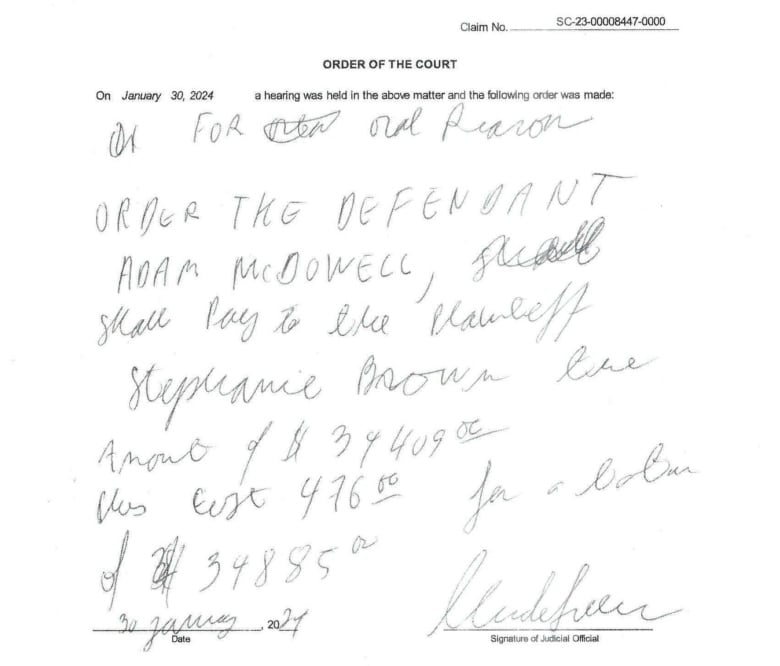 Claim No. SC-23-00008447-0000
ORDER OF THE COURT
On January 30, 2024 a hearing was held in the above matter and the following order was made:
FOR oral Reason
ORDER THE DEFENDANT
ADAM McDOWELL,
shall Pay to the Plaintiff
Stephanie Brown the
Amount of $ 34409 00
Plus Cost 476 00 for a total
of $ 34885 00
30 January, 2024
Date
Signature of Judicial Official